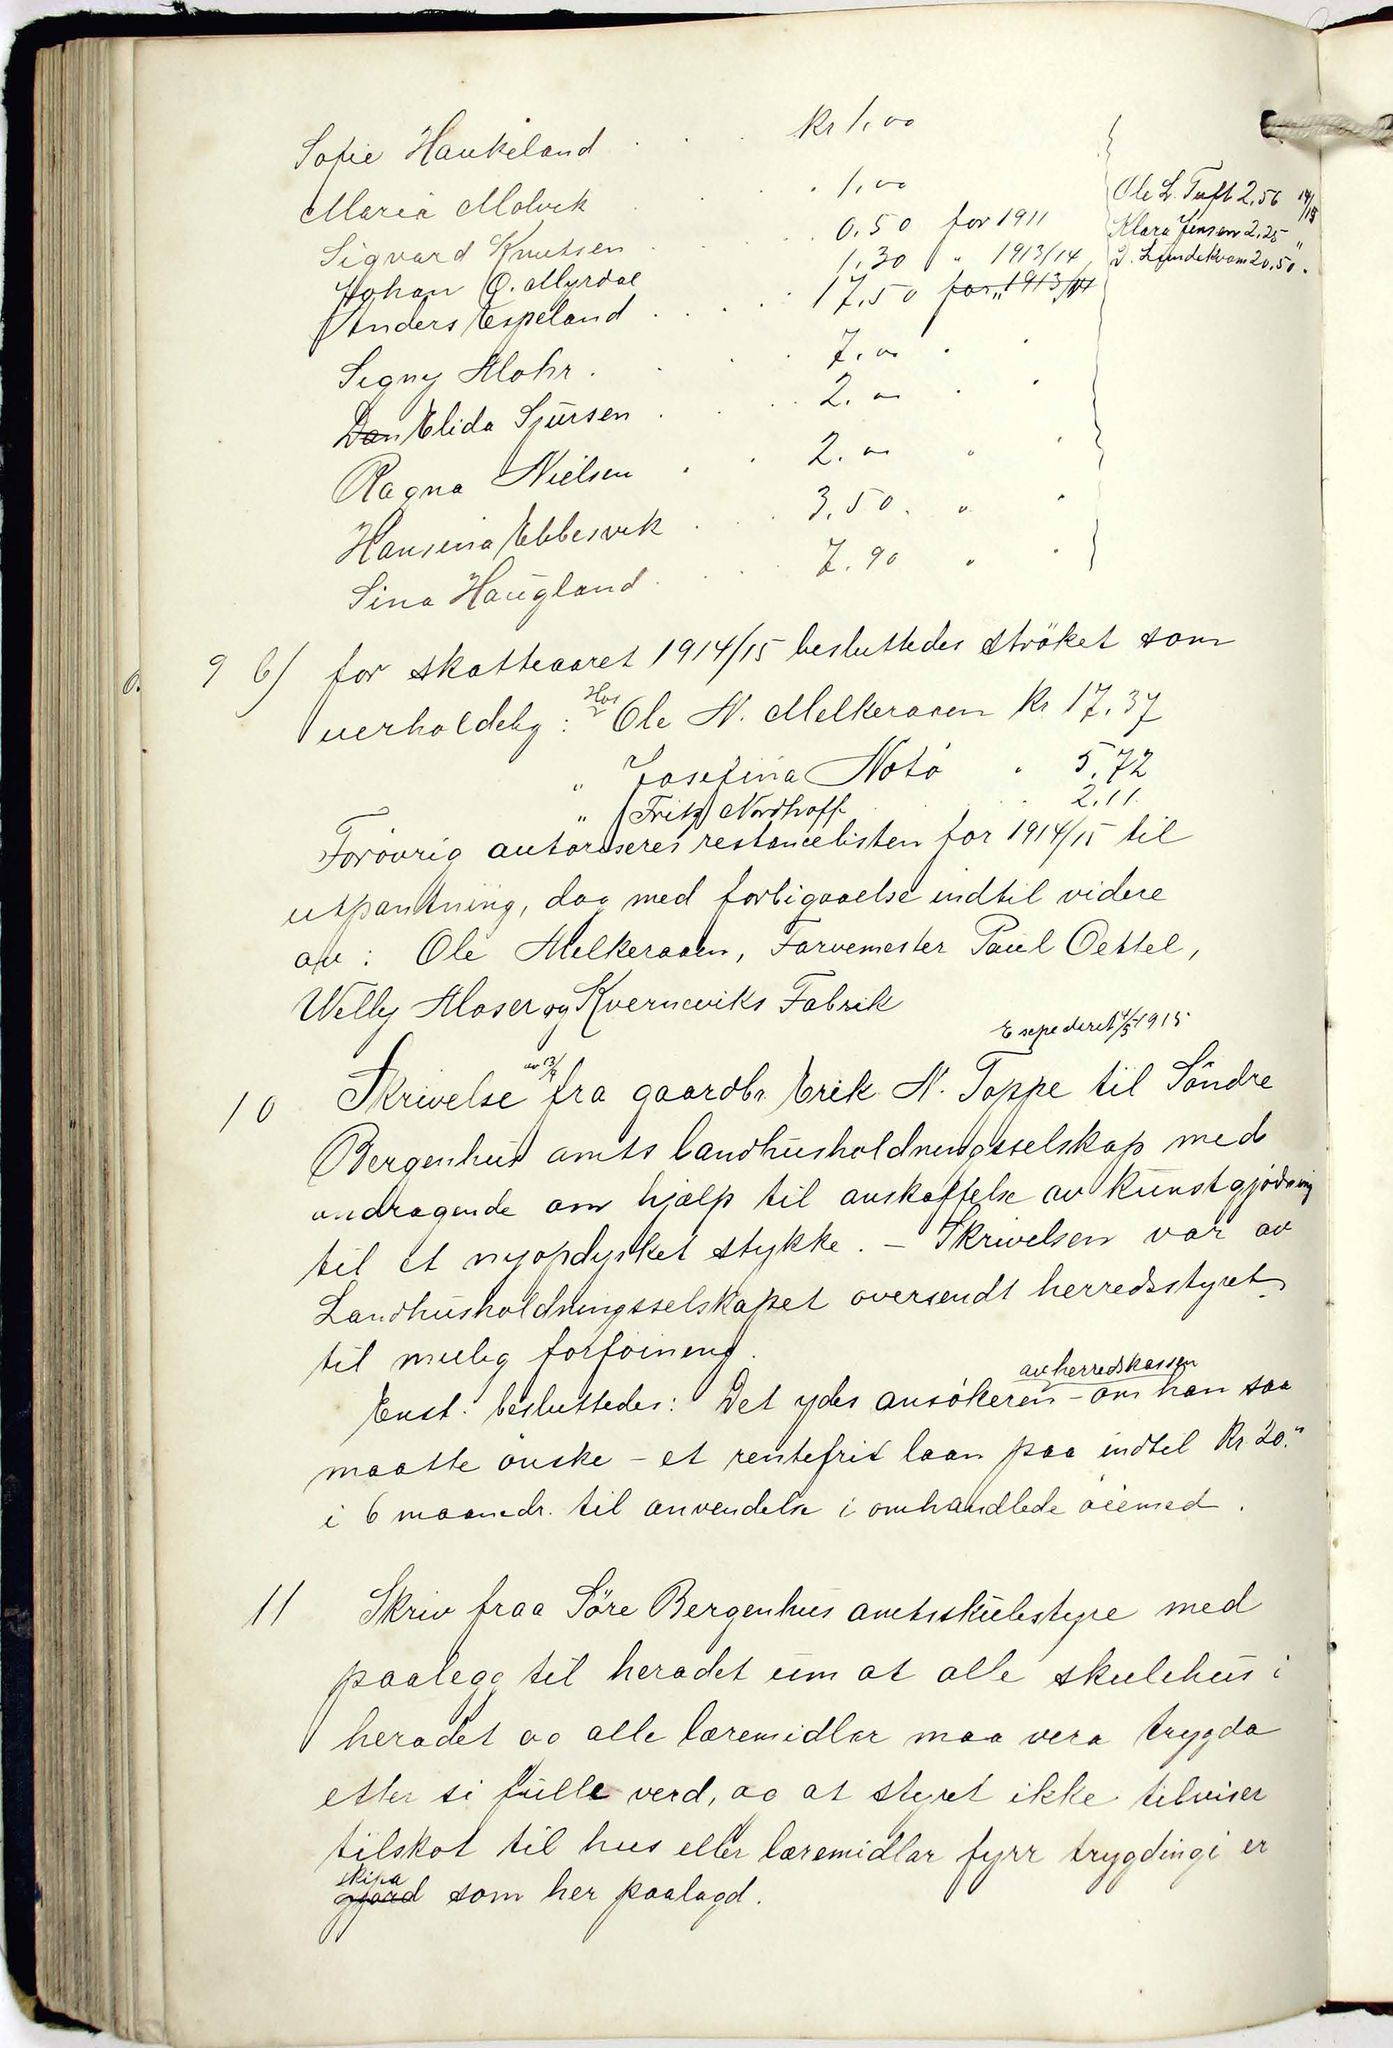 Sofie Haukeland . . kr 1,00
Maria Molvik . 1,00
Sigvard Knutsen . . . 0.50 for 1911
Johan O. Myrdal . . . 1,30 " 1913/14
Anders Espeland . . . . 17,50 for " 1913/14
Signy Mohr . . . 7.00 " "
Dan Elida Sjursen . . . 2.00 " "
Ragna Nielsen . . 2.00 " "
Hansina Ebbesvik . . . 3,50. " "
Sina Haugland . . . 7.90 " "
Ole L. Tuft 2,56 14/15
Klara Jensen 2,25 "
J. Lyndekvam 20,50 "
9 b) for skatteaaret 1914/15 besluttedes ströket som
uerholdelig : Hos Ole N. Melkeraaen Kr 17,37
" Josefina Notö " 5,72
" Fritz Nordhoff . . 2,11
Forövrig autoriseres restancelisten for 1914/15 til
utpantning, dog med forbigaaelse indtil videre
av : Ole Melkeraaen, Farvemester Paul Oettel,
Welly Moser og Kverneviks Fabrik
Expederet 4/5 1915
10 Skrivelse av 13/4 fra gaardbr. Erik N. Toppe til Söndre
Bergenhus amts landhusholdningsselskap med
andragende om hjælp til anskaffelse av kunstgjödning
til et nyopdyrket stykke. – Skrivelsen var av
Landhusholdningsselskapet oversendt herredsstyret
til mulig forföining.
Enst. besluttedes: Det ydes ansökeren av herredskassen – om han saa
maatte önske – et rentefrit laan paa indtil Kr 20."
i 6 maaneder. til anvendelse i omhandlede öiemed.
11 Skriv fraa Söre Bergenhus amtsskulestyre med
paalegg til heradet um at alle skulehus i
heradet og alle læremidlar maa vera trygda
etter si fulle verd, og at styret ikke tilviser
tilskot til hus eller læremidlar fyrr trygdingi er
gjord skipa som her paalagd.